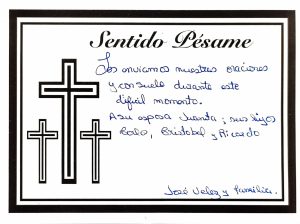 Sentido Pésame
Les enviamos nuestras oraciones
y consuelo durante este
difícil momento.
A su esposa Juanita; sus hijos
Lalo, Cristobal y Ricardo
José Velez y familia.